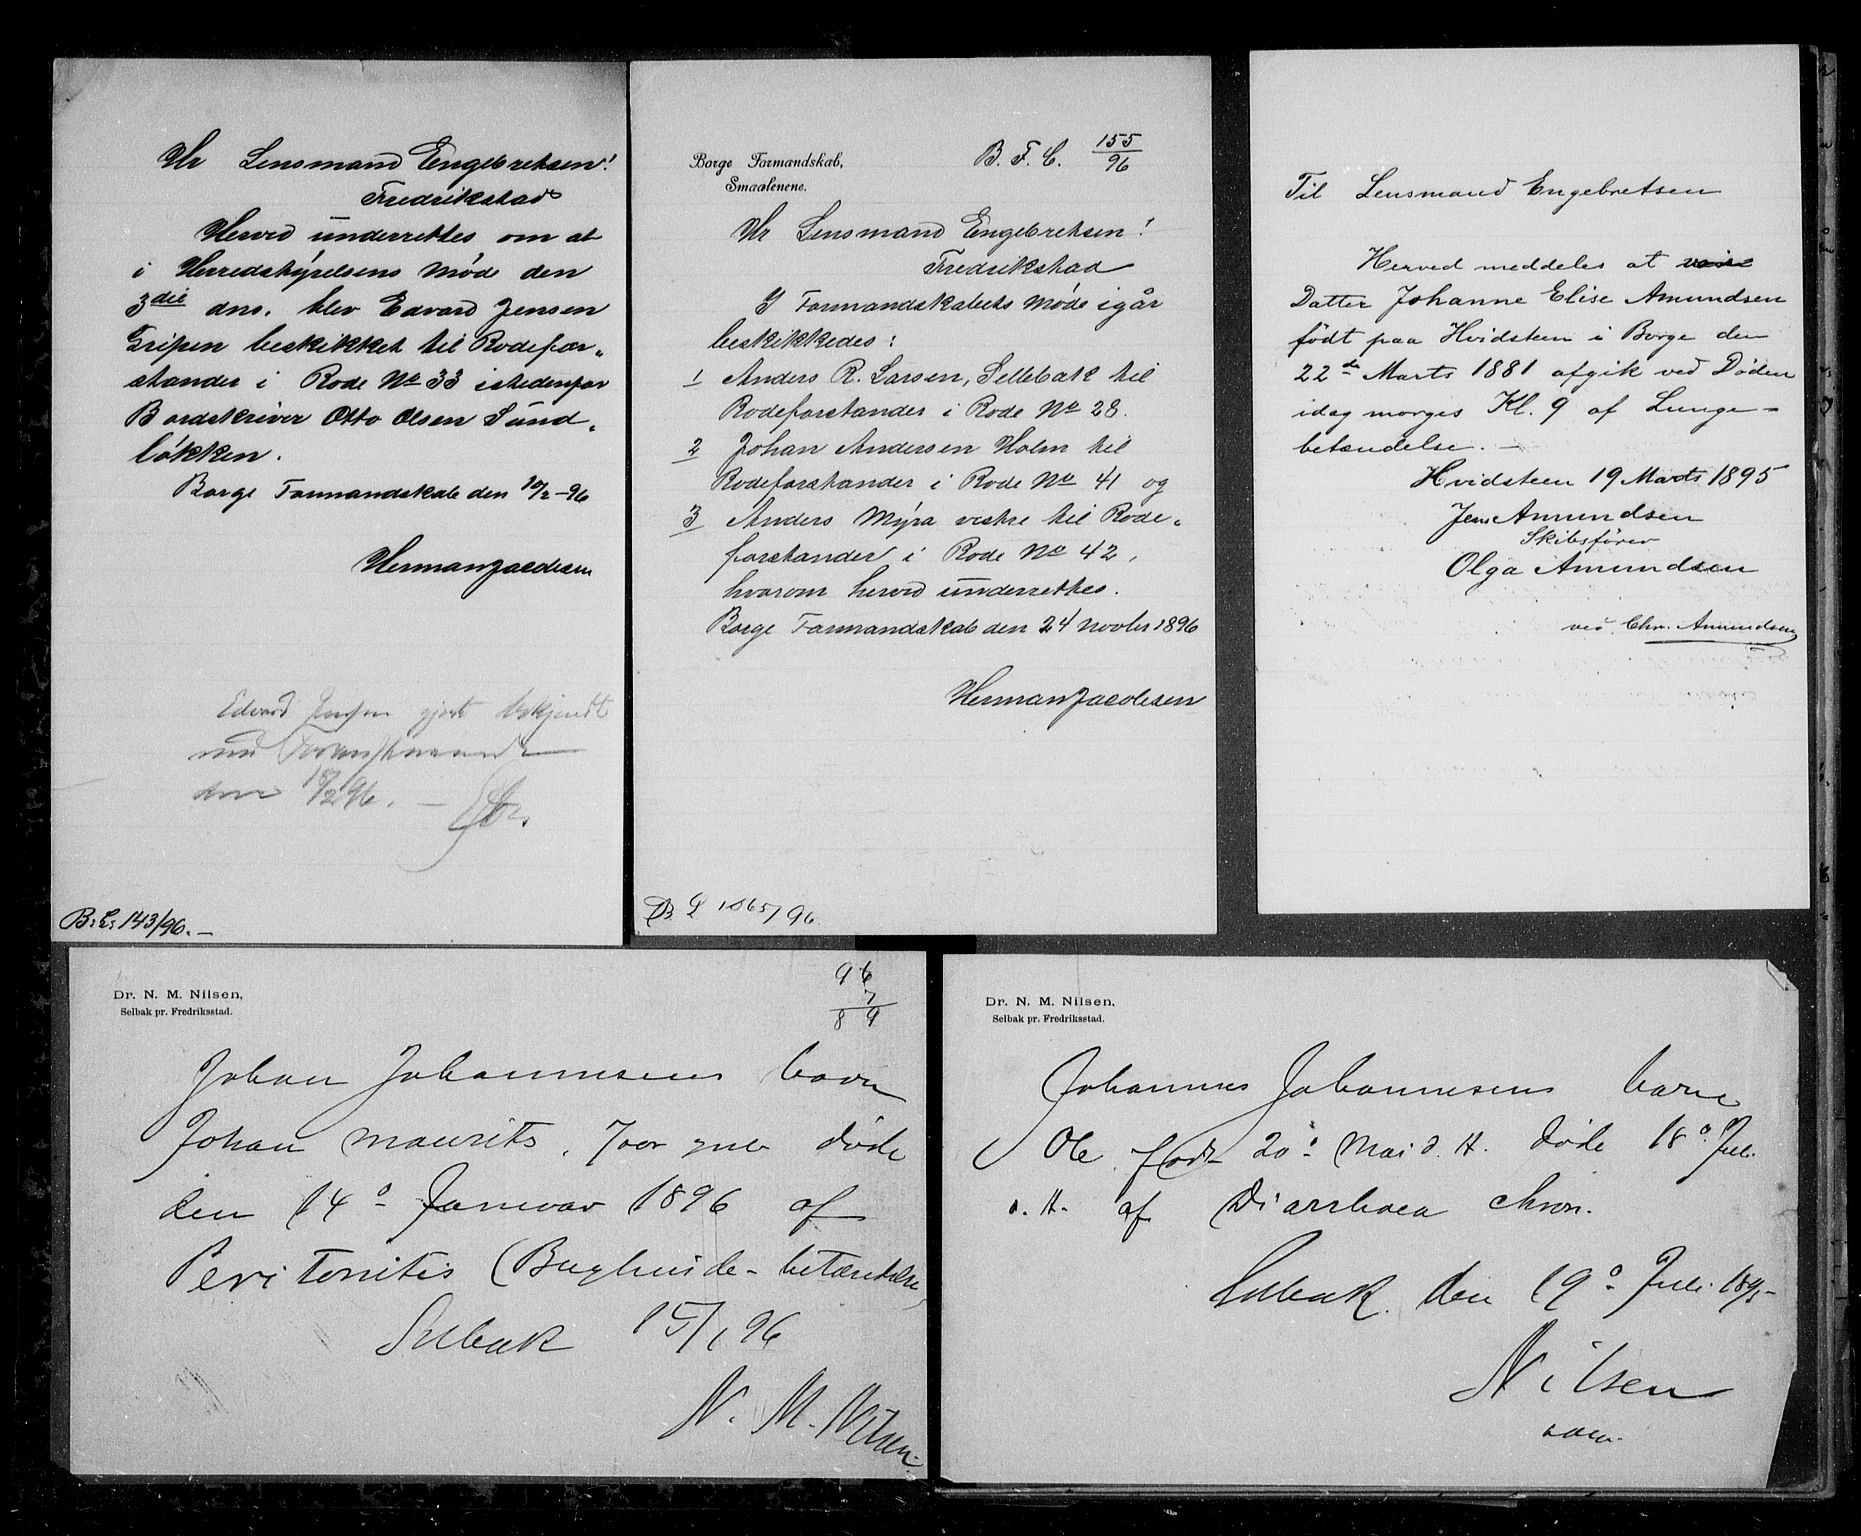 Hr Lensmand Engebretsen!
Fredrikstad
Herved underrettes om at
i Herredstyrelsens Møde den
3die dns. blev Edvard Jensen
Gripen beskikket til Rodefor„
stander i Rode No 33 istedenfor
Bordskriver Otto Olsen Sund„
løkken.
Borge Formandskab den 10/2-96
Herman Jacobsen
Edvard Jensen gjort bekjendt
med Foranstaaende
den 18/2 96. —
B. L. 143/96. —
Borge Formandskab,
Smaalenene.
B. F. C. 155/96
Hr Lensmand Engebretsen!
Fredrikstad
I Formandskabets Møde igår
beskikkedes:
1 Anders R. Larsen, Sellebak til
Rodeforstander i Rode No 28.
2 Johan Andersen Holm til
Rodeforstander i Rode No 41 og
3 Anders Myra vestre til Rode„
forstander i Rode No 42,
hvorom herved underrettes.
Borge Formandskab den 24 novbr 1896
Herman Jacobsen
B L 1065/96
Til Lensmand Engebretsen
Herved meddeles at vor
Datter Johanne Elise Amundsen
født paa Hvidsteen i Borge den
22de Marts 1881 afgik ved Døden
idag morges Kl. 9 af Lunge-
betændelse. —
Hvidsteen 19 Marts 1895
Jens Amundsen
Skibsfører
Olga Amundsen
ved Chr. Amundsen
Dr. N. M. Nilsen,
Selbak pr. Fredriksstad.
96
7
89
Johan Johannesens barn
Johan Maurits, 7 aar gml døde
den 14o Januar 1896 af
Peritonitis (Bughinde-betændelse)
Selbak 15/1 96
N. M. Nilsen.
Dr. N. M. Nilsen,
Selbak pr. Fredriksstad.
Johannes Johannesens barn
Ole født 20o Mai d. A. døde 18o Juli
d. A. af Diarrhoea chron.
Selbak den 19o Juli 1895
Nilsen